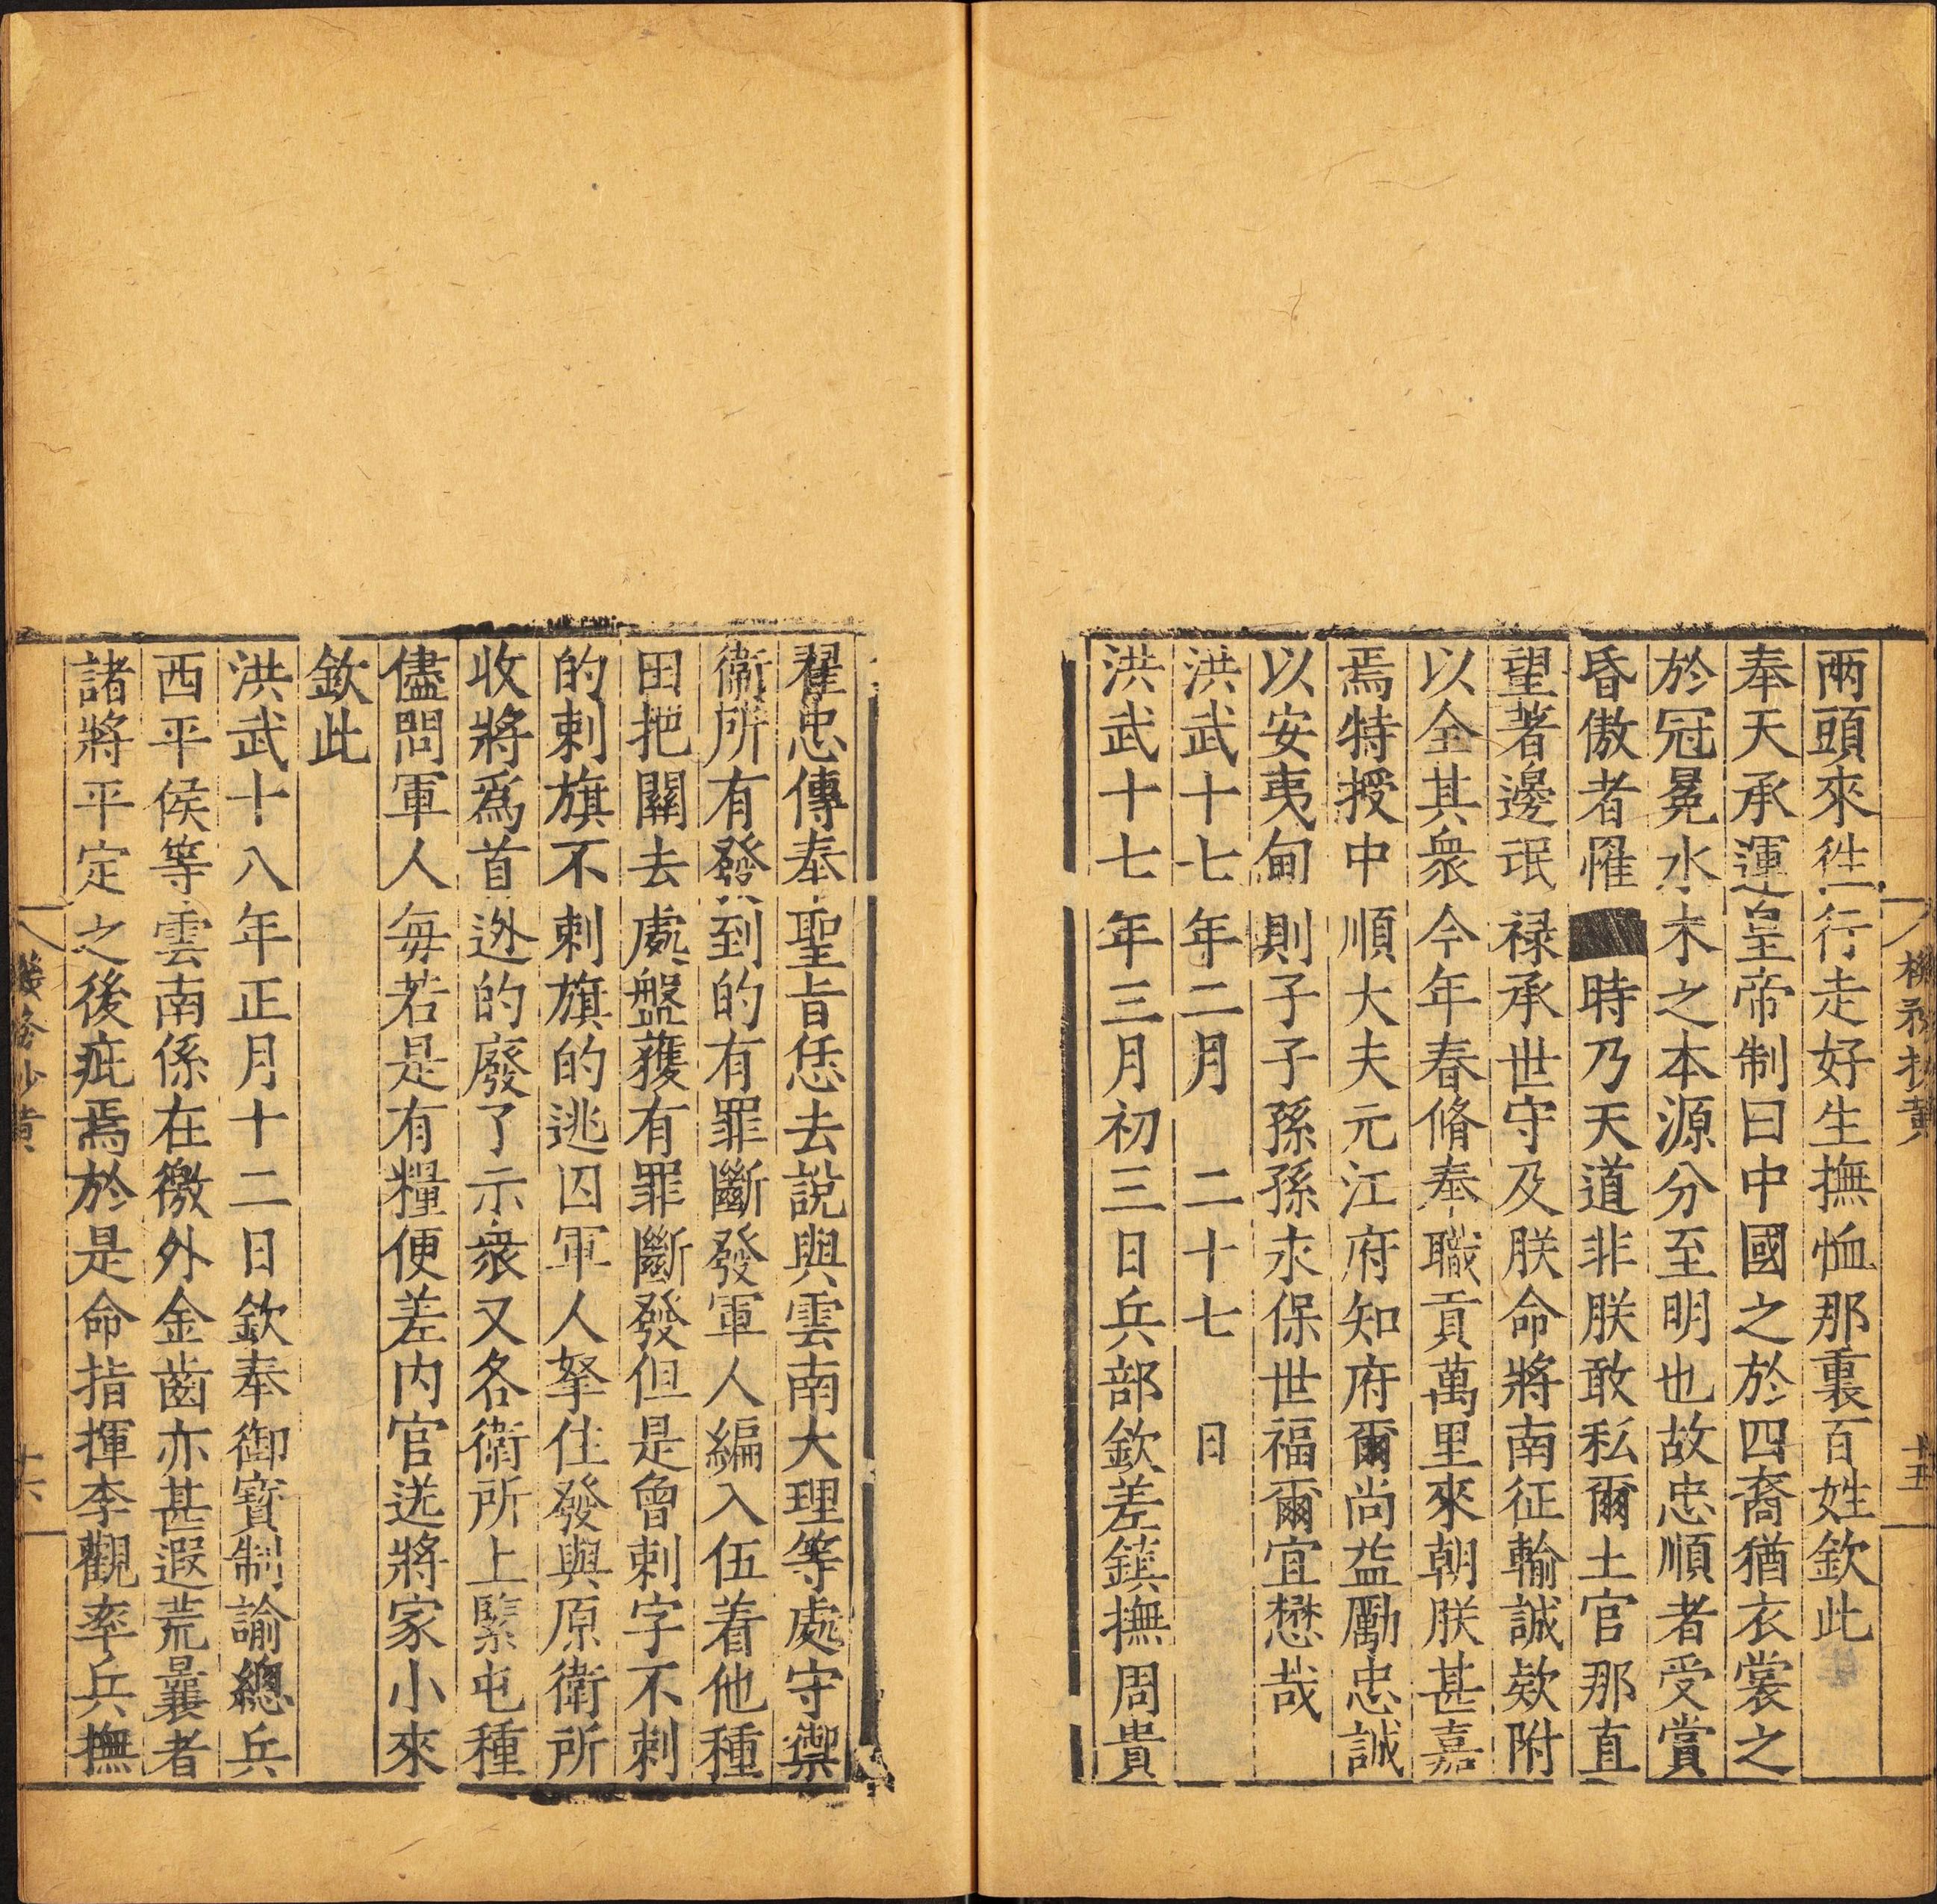 兩頭來徃行走好生撫恤那裏百姓欽此
奉天承運皇帝制曰中國之於四裔猶衣裳之
於冠冕水木之本源分至明也故忠順者受賞
昏傲者罹時乃天道非朕敢私爾土官那直
望著邊氓禄承世守及朕命將南征輸誠欵附
以全其衆今年春脩奉職貢萬里來朝朕甚嘉
焉特授中順大夫元江府知府爾尚益勵忠誠
以安夷甸則子子孫孫永保世福爾宜懋哉
洪武十七年二月二十七日
洪武十七年三月初三日兵部欽差鎮撫周貴
翟忠傳奉聖旨恁去說與雲南大理等處守禦
衛所有發到的有罪斷發軍人編入伍着他種
田把關去處盤獲有罪斷發但是曾刺字不刺
的刺旗不刺旗的逃囚軍人拏住發與原衛所
收將爲首迯的廢了示衆又各衛所上緊屯種
儘問軍人每若是有糧便差内官送將家小來
欽此
洪武十八年正月十二日欽奉御寶制諭總兵
西平侯等雲南係在徼外金齒亦甚遐荒曩者
諸將平定之後疵焉於是命指揮李觀率兵撫
十五
十六